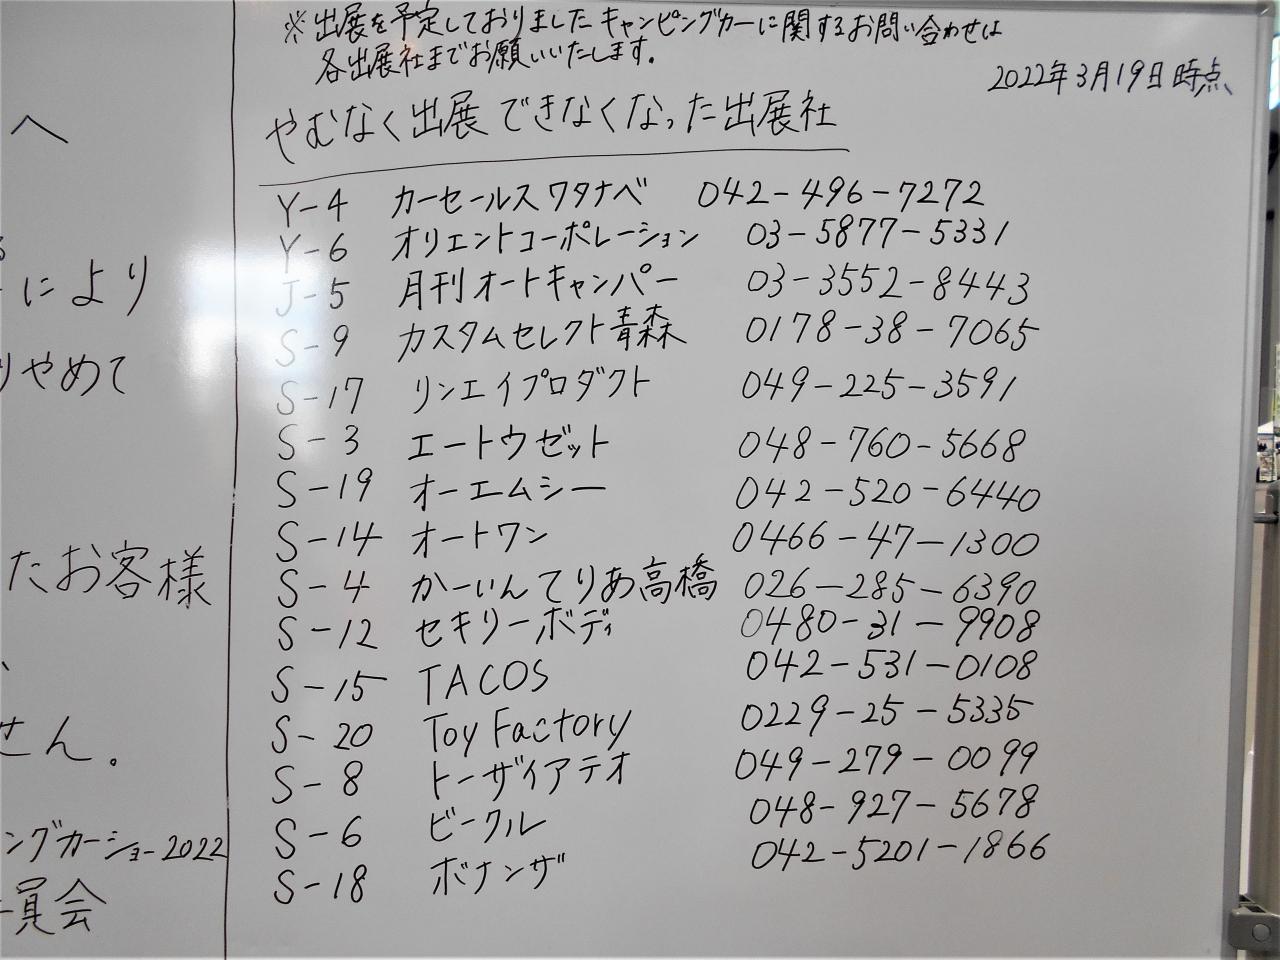 へ
により
りやめて
たお客様
せん。
ングカーショー2022
員会
※出展を予定しておりましたキャンピングカーに関するお問い合わせは
各出展社までお願いいたします。
2022年3月19日時点
やむなく出展できなくなった出展社
Y-4 カーセールスワタナベ 042-496-7272
Y-6 オリエントコーポレーション 03-5877-5331
J-5 月刊オートキャンパー 03-3552-8443
S-9 カスタムセレクト青森 0178-38-7065
S-17 リンエイプロダクト 049-225-3591
S-3 エートゥゼット 048-760-5668
S-19 オーエムシー 042-520-6440
S-14 オートワン 0466-47-1300
S-4 かーいんてりあ高橋 026-285-6390
S-12 セキソーボディ 0480-31-9908
S-15 TACOS 042-531-0108
S-20 Toy Factory 0229-25-5335
S-8 トーザイアテオ 049-279-0099
S-6 ビークル 048-927-5678
S-18 ボナンザ 042-5201-1866